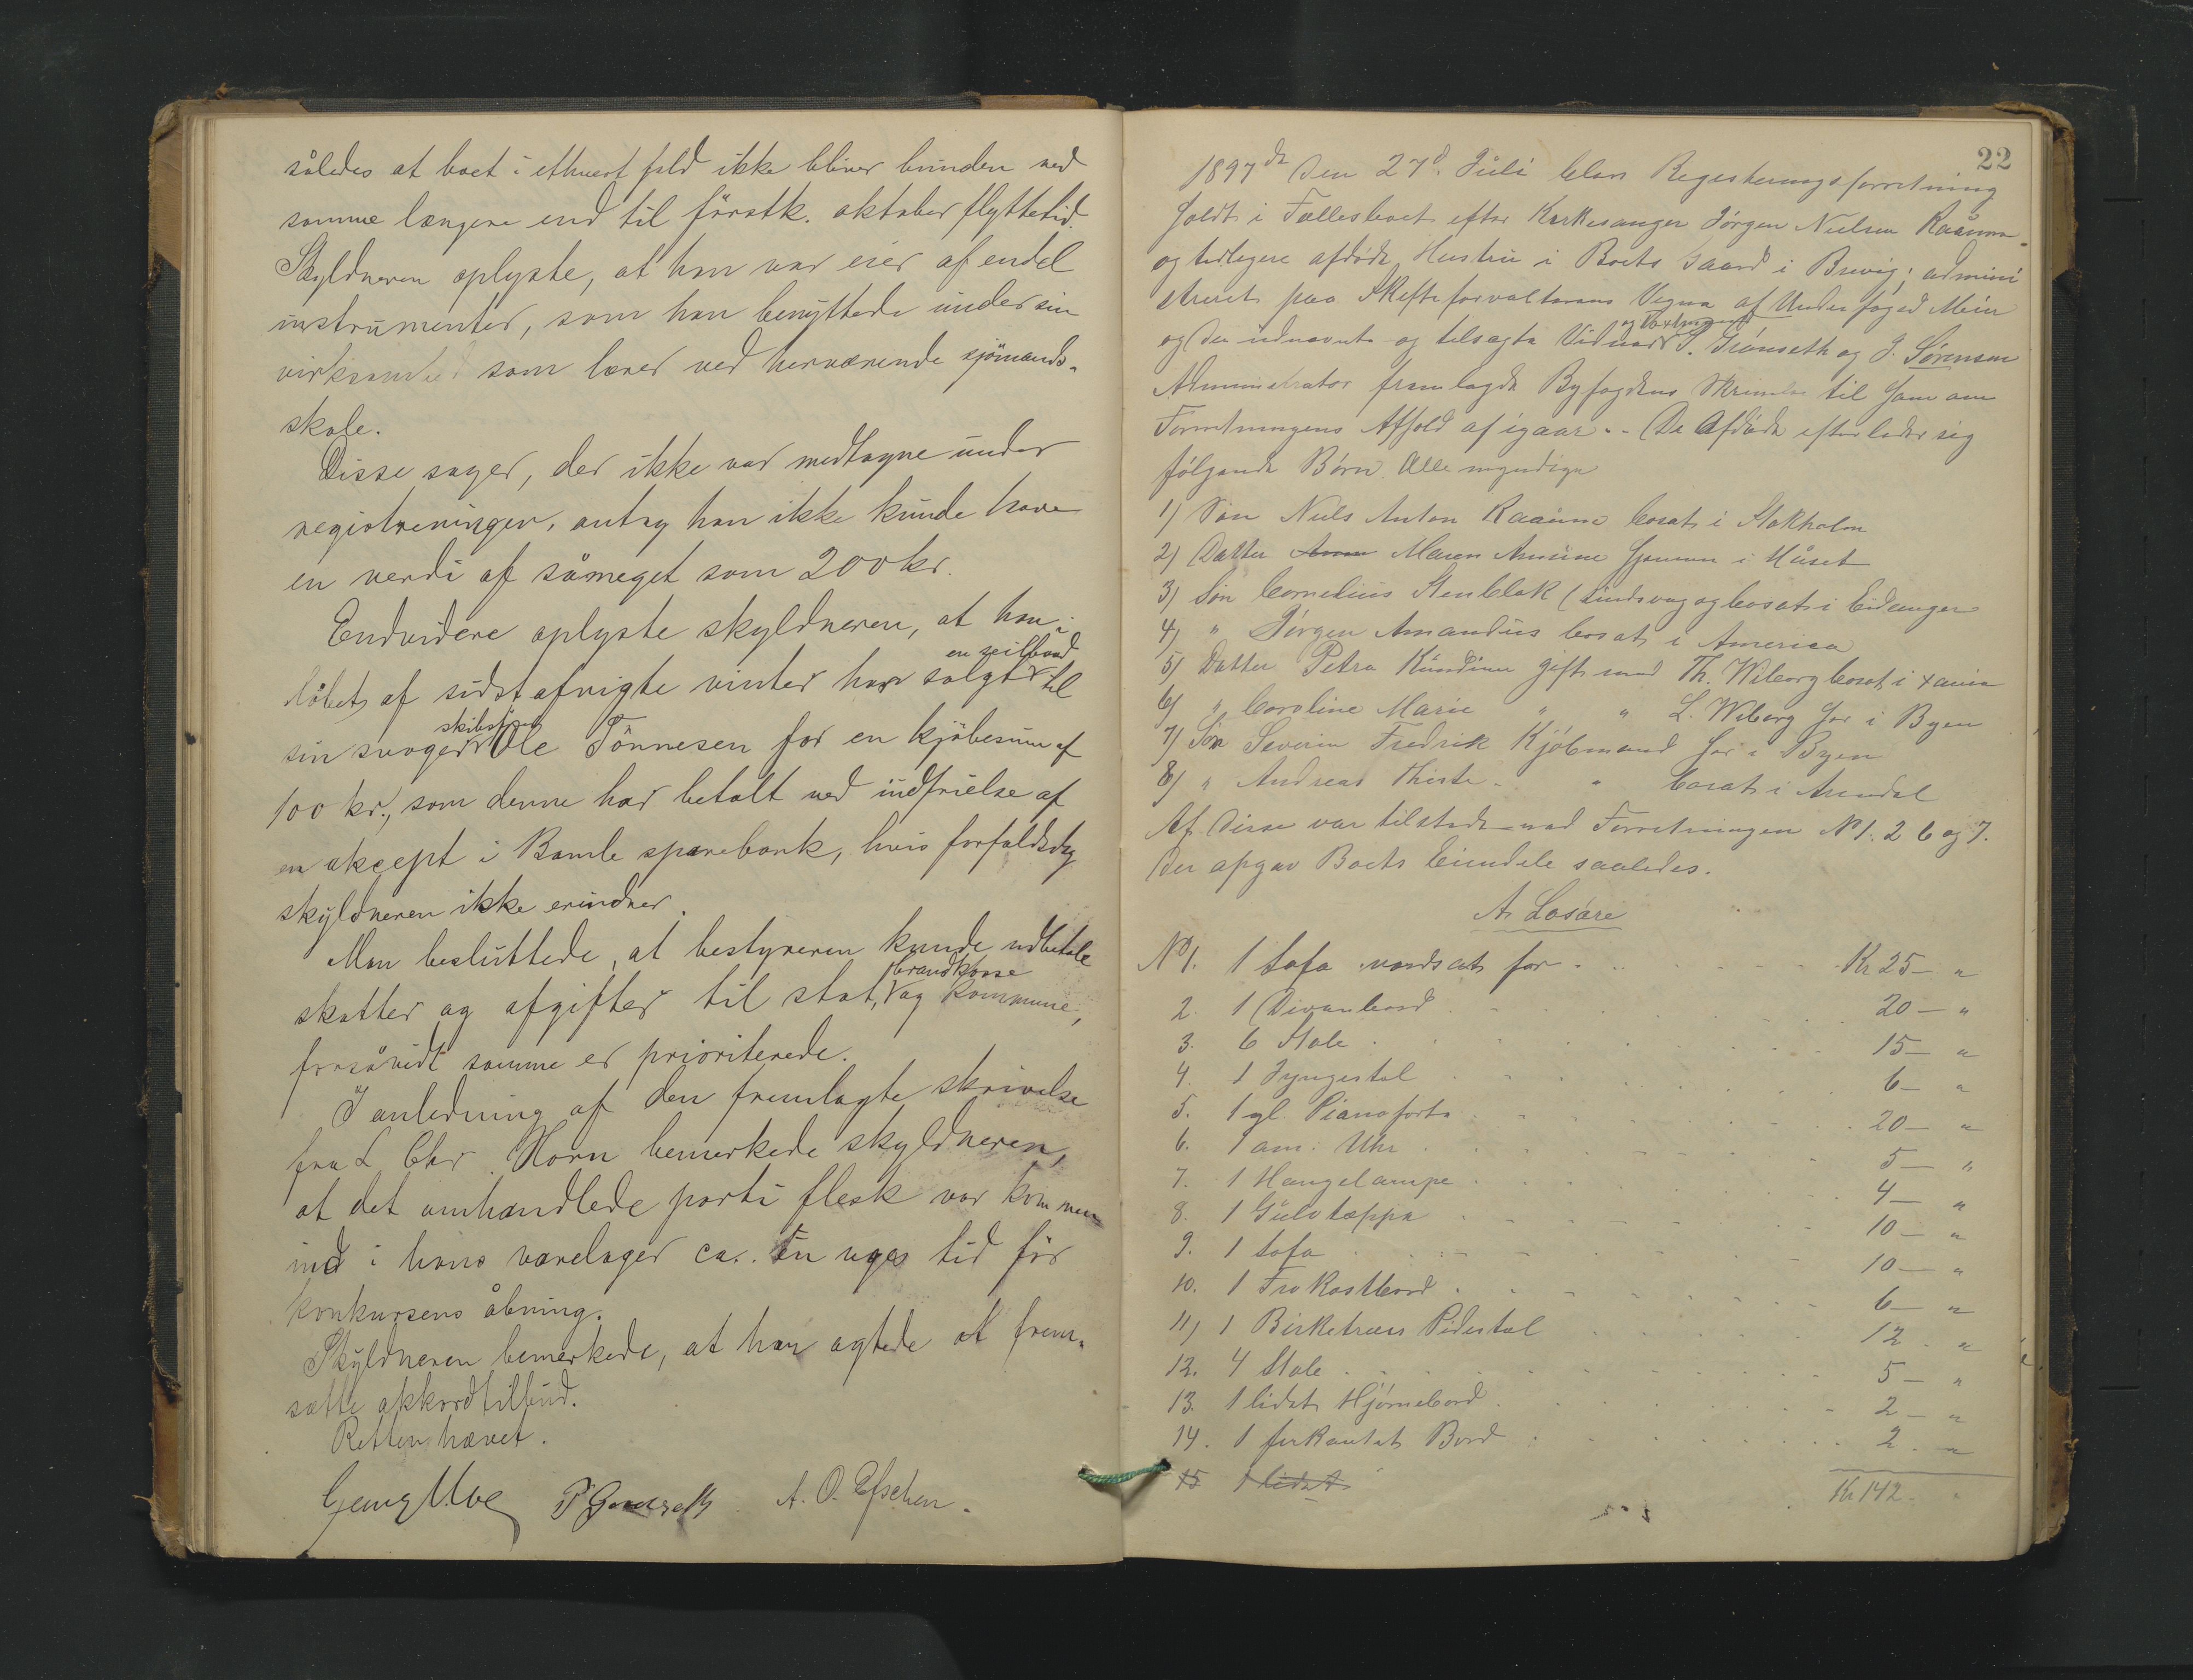 således at boet i ethvert fald ikke bliver bunden ved
samme længere end til førstk. oktober flyttetid.
Skyldneren oplyste, at han var eier af endel
instrumenter, som han benyttede under sin
virksomhed som lærer ved herværende sjömands-
skole.
Disse sager, der ikke var medtagne under
registreringen, antog han ikke kunde have
en verdi af såmeget som 200 kr.
Endvidere oplyste skyldneren, at han i
en seilbaad
löbet af sidst afvigte vinter har solgt til
skibsfører
sin svoger Ole Tönnesen for en kjöbesum af
100 kr., som denne har betalt ved indfrielse af
en aksept i Bamle sparebank, hvis forfaldsdag
skyldneren ikke erindrer.
Man besluttede, at bestyreren kunde udbetale
brandkasse
skatter og afgifter til stat, og kommune,
forsåvidt samme er prioriterede.
I anledning af den fremlagte skrivelse
fra L. Chr. Horn bemerkede skyldneren,
at det omhandlede parti flesk var kommen
ind i hans varelager ca. én uges tid för
konkursens åbning.
Skyldneren bemerkede, at han agtede at frem-
sætte akkordtilbud.
Retten hævet.
A. O.
22
1897 den 27d. Juli blev Registeringsforretning
holdt i Fællesboet efter Kirkesanger Jörgen Nielsen Raaum
og tidligere afdöde Hustru i Boets Gaard i Brevig; admini
streret paa Skifteforvalterens Vegne af Underfoged Meier
og de udnævnte og tilsagte Vidner og J. Sörensen
Administrator fremlagde Byfogdens Skrivelse til ham om
Forretningens Afhold af igaar. - De Afdöde efterlader sig
fölgende Börn. Alle myndige
1) Sön Niels Anton Raaum bosat i Stokholm
2) Datter Maren Amine hjemme i Huset
3) Sön Cornelius Stenblok (Sindsvag og bosat i Eidanger
4) " Jörgen Amandus bosat i America
5) Datter Petra Kundine gift med Th. Wiborg bosat i Xania
6) " Caroline Marie " " L. Wiborg her i Byen
7) Sön Severin Fredrik Kjöbmand her i Byen
8) " Andreas Thiste " bosat i Arendal
Af disse var tilstede ved Forretningen No 1. 2 6 og 7.
Der opgav Boets Eiendele saaledes.
A. Losöre
No 1. 1 Sofa vurdsat for Kr 25 - "
2. 1 Divanbord 20 - "
3. 6 Stole 15 - "
4. 1 Gyngestol 6 - "
5. 1 gl. Pianoforte 20 - "
6. 1 am. Uhr 5 - "
7. 1 Hængelampe 4 - "
8. 1 Gulvtæppe 10 - "
9. 1 Sofa 10 - "
10. 1 Frokostbord 6 - "
11) 1 Birketræes Pidestal 12 . "
12. 4 Stole 5 - "
13. 1 lidet Hjörnebord 2 - "
14. 1 firkantet Bord 2 . "
15 1 lidet
Kr 142.